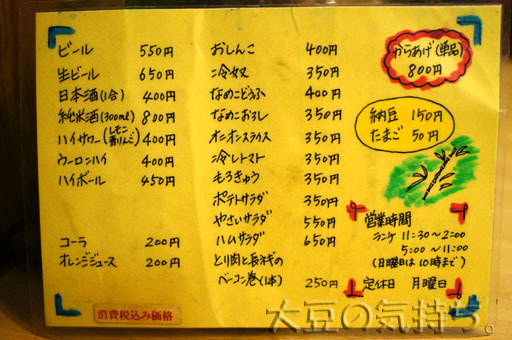 ビール 550円
生ビール 650円
日本酒(1合) 400円
純米酒(300ml) 800円
ハイサワー(レモン 青りんご) 400円
ウーロンハイ 400円
ハイボール 450円
コーラ 200円
オレンジジュース 200円
消費税込み価格
おしんこ 400円
冷奴 350円
なめこどうふ 400円
なめこおろし 350円
オニオンスライス 350円
冷しトマト 350円
もろきゅう 350円
ポテトサラダ 350円
やさいサラダ 550円
ハムサラダ 650円
とり肉と長ネギの
ベーコン巻(1本) 250円
からあげ(単品)
800円
納豆 150円
たまご 50円
営業時間
ランチ 11:30~2:00
5:00~11:00
(日曜日は10時まで)
定休日 月曜日
大豆の気持ち。